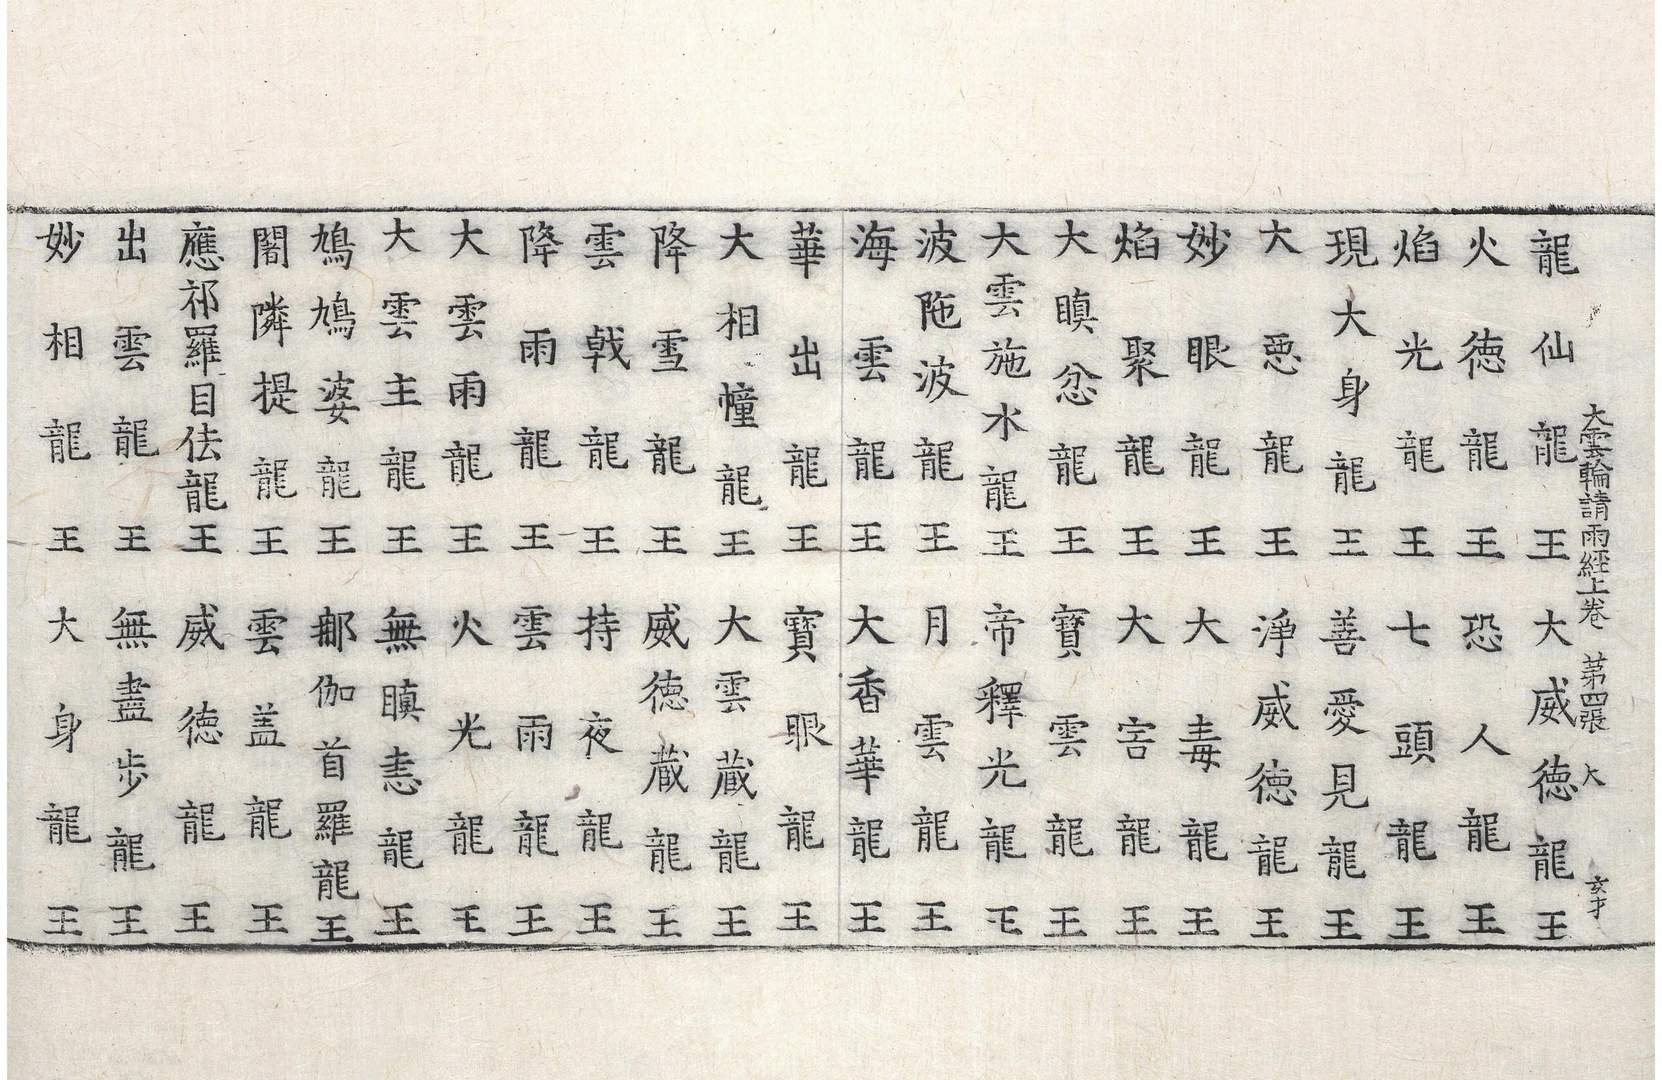 大雲輪請雨經上卷 第四張 大 亥才
龍仙龍王 大威徳龍王
火徳龍王 恐人龍王
焰光龍王 七頭龍王
現大身龍王 善愛見龍王
大惡龍王 淨威徳龍王
妙眼龍王 大毒龍王
焰聚龍王 大害龍王
大瞋忿龍王 寶雲龍王
大雲施水龍王 帝釋光龍王
波陁波龍王 月雲龍王
海雲龍王 大香華龍王
華出龍王 寶眼龍王
大相幢龍王 大雲蔵龍王
降雪龍王 威徳蔵龍王
雲戟龍王 持夜龍王
降雨龍王 雲雨龍王
大雲雨龍王 火光龍王
大雲主龍王 無瞋恚龍王
鳩鳩婆龍王 那伽首羅龍王
闍隣提龍王 雲盖龍王
應祁羅目佉龍王 威徳龍王
出雲龍王 無盡步龍王
妙相龍王 大身龍王